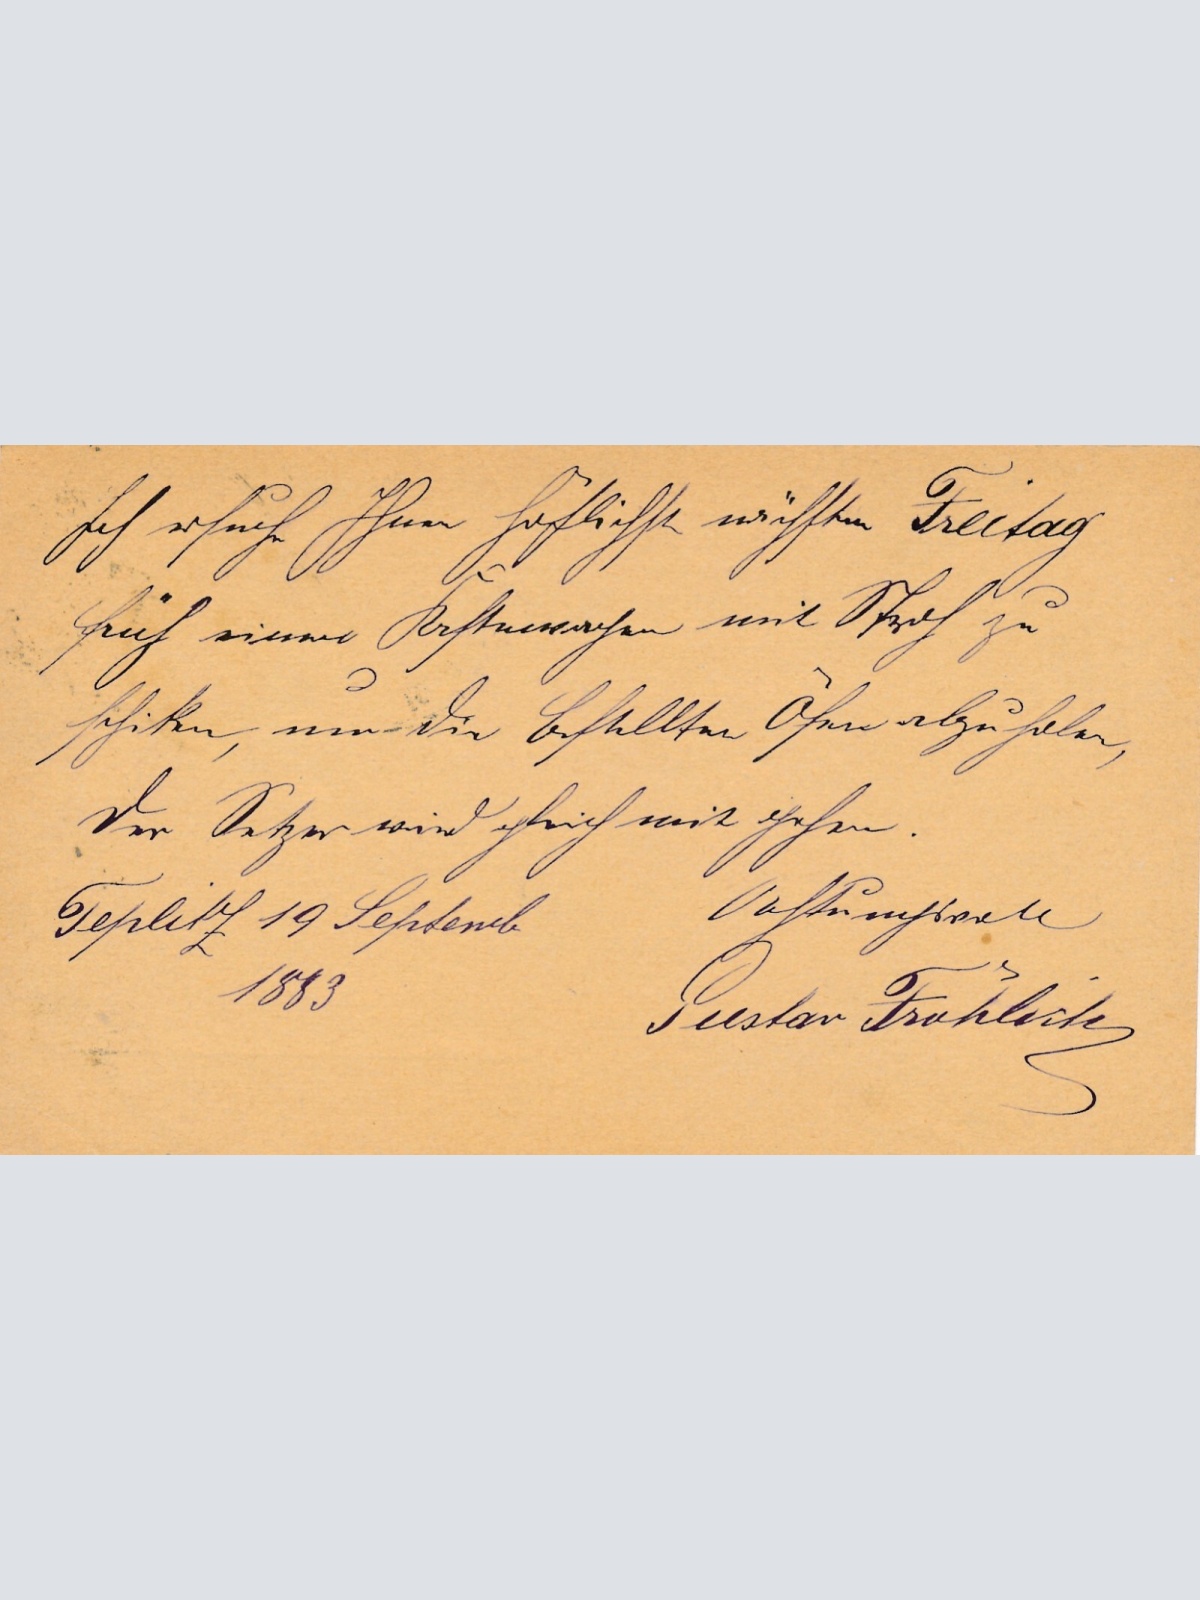 Ich ersuche Ihnen höflichst nächsten Freitag
früh einen Kastenwagen mit Stroh zu
schiken, um die bestellten Öfen abzuholen,
der Setzer wird gleich mit gehen.
Teplitz 19 Septemb Achtungsvoll
1883 Gustav Fröhlich